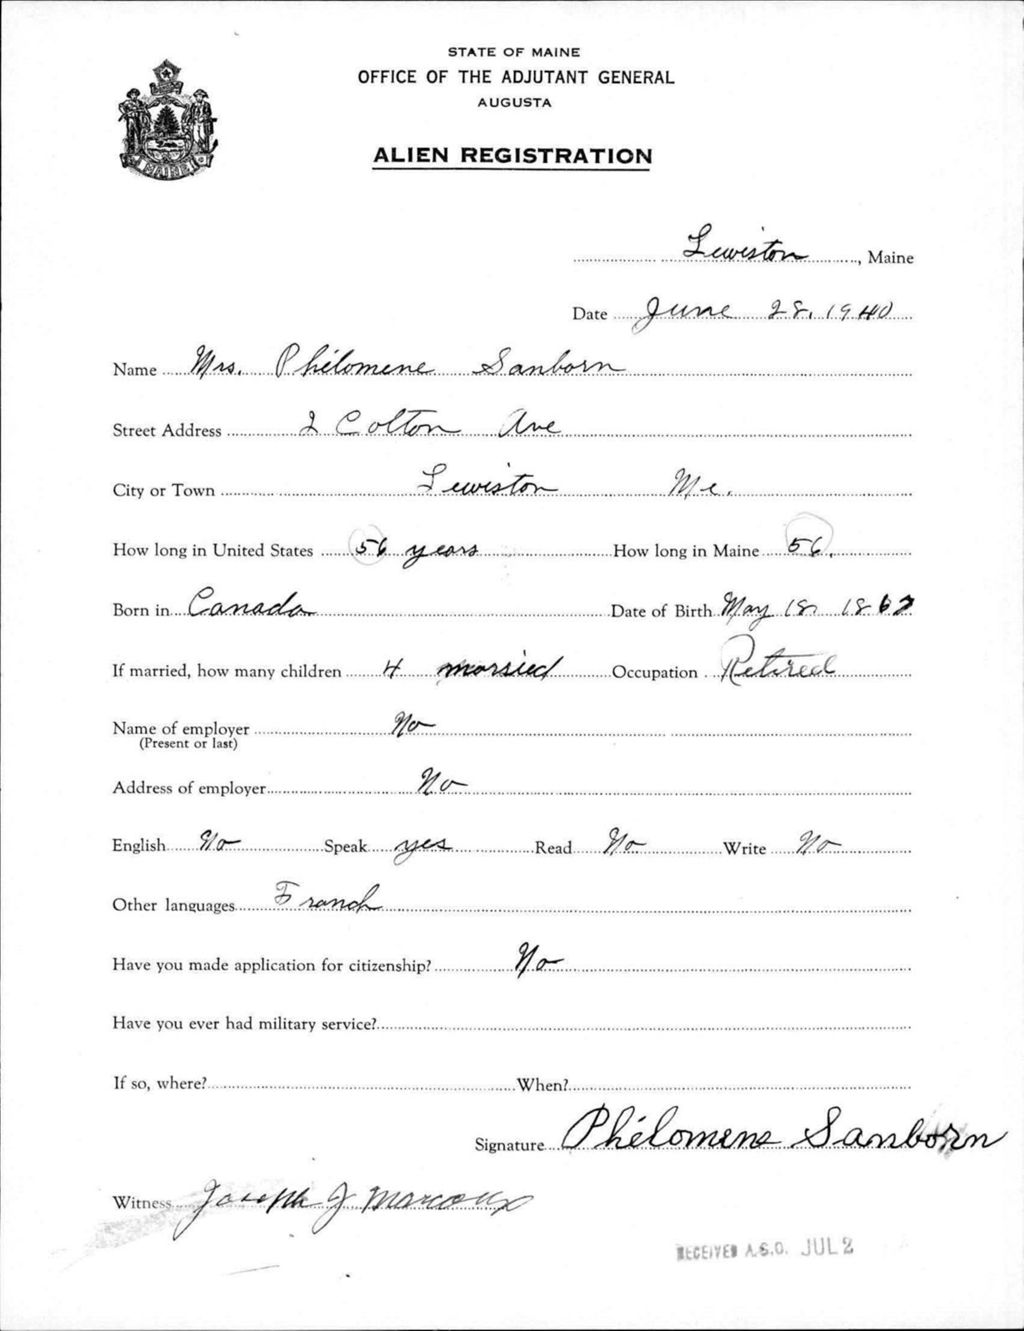 STATE OF MAINE
OFFICE OF THE ADJUTANT GENERAL
AUGUSTA
ALIEN REGISTRATION
MAINE
Lewiston, Maine
Date June 28, 1940
Name Mrs. Philomene Sanborn
Street Address 2 Colton Ave
City or Town Lewiston Me.
How long in United States 56 years How long in Maine 56.
Born in Canada Date of Birth May 18 1862
If married, how many children 4 married Occupation Retired
Name of employer No
(Present or last)
Address of employer No
English No Speak yes Read No Write No
Other languages French
Have you made application for citizenship? No
Have you ever had military service?
If so, where? When?
Signature Philomene Sanborn
Witness Joseph J Marcoux
RECEIVED A.G.O. JUL 2